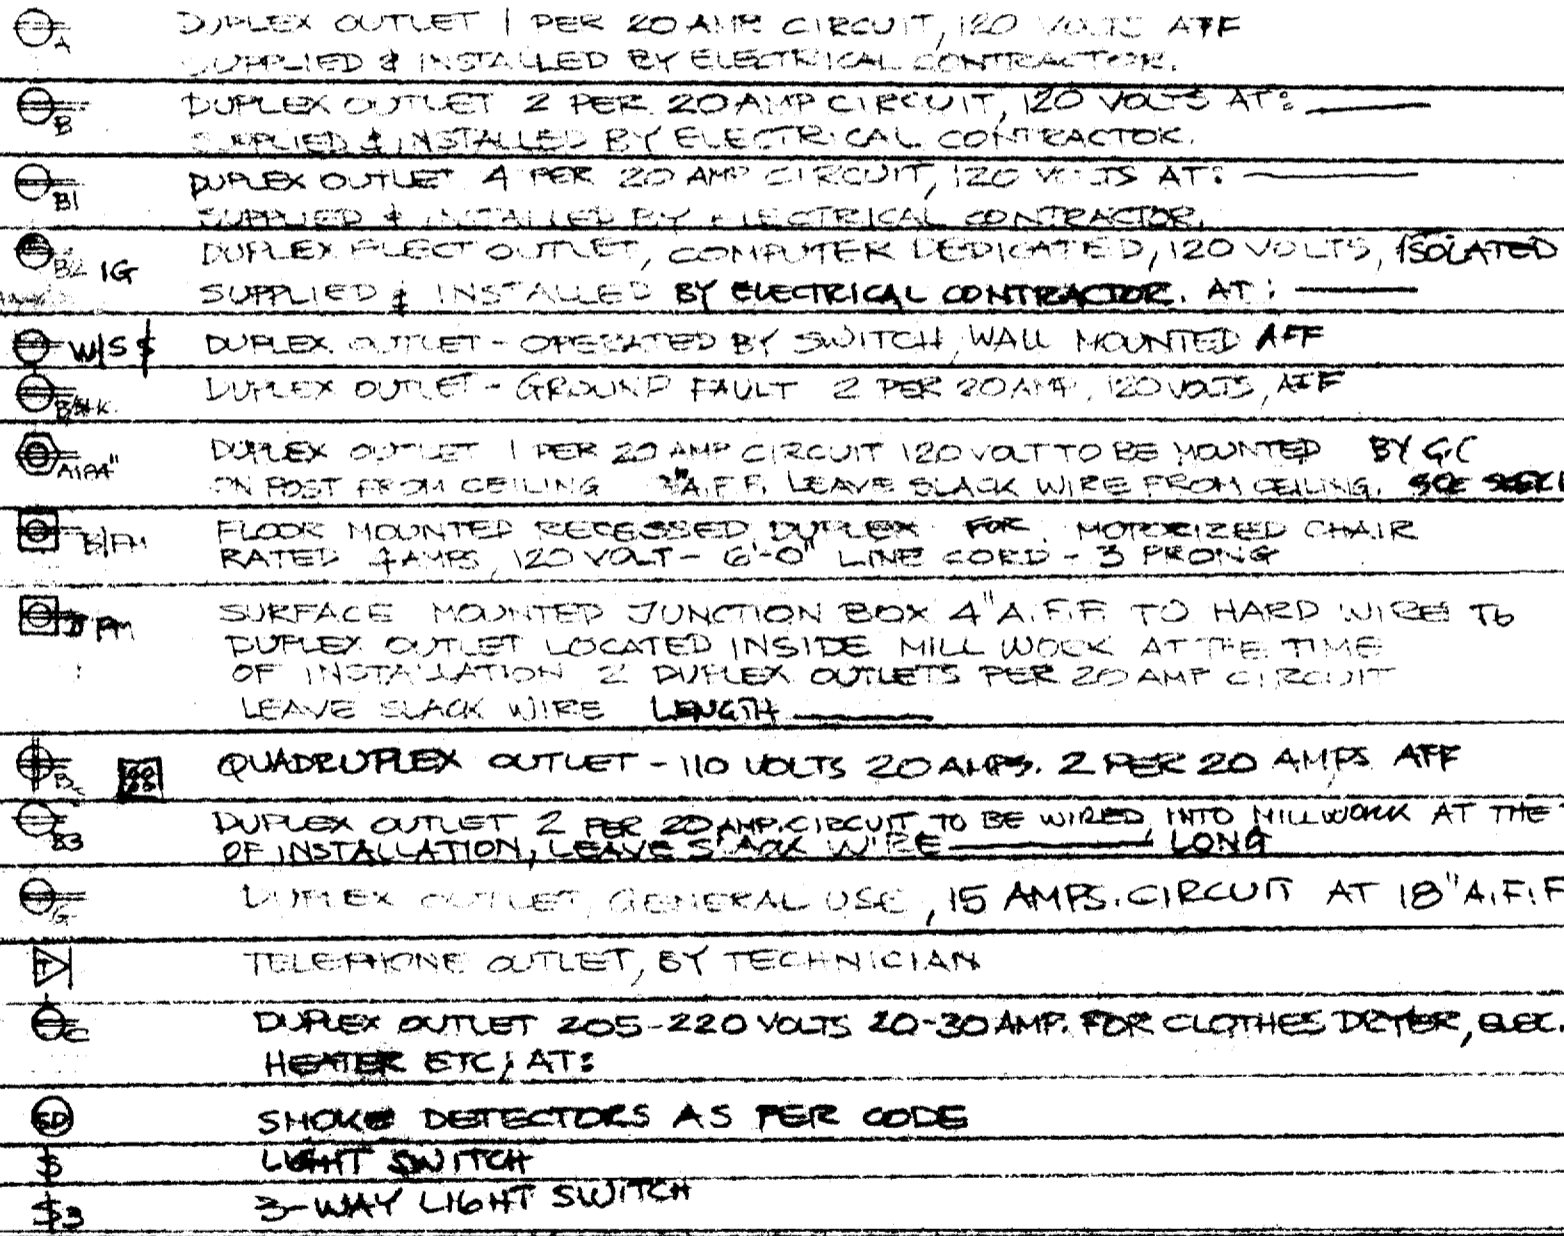 A DUPLEX OUTLET 1 PER 20 AMP CIRCUIT, 120 VOLTS AFF
SUPPLIED & INSTALLED BY ELECTRICAL CONTRACTOR.
B DUPLEX OUTLET 2 PER 20 AMP CIRCUIT, 120 VOLTS AT:
SUPPLIED & INSTALLED BY ELECTRICAL CONTRACTOR.
B1 DUPLEX OUTLET 4 PER 20 AMP CIRCUIT, 120 VOLTS AT:
SUPPLIED & INSTALLED BY ELECTRICAL CONTRACTOR.
B2 IG DUPLEX ELECT OUTLET, COMPUTER DEDICATED, 120 VOLTS, ISOLATED
SUPPLIED & INSTALLED BY ELECTRICAL CONTRACTOR. AT:
W/S $ DUPLEX OUTLET - OPERATED BY SWITCH, WALL MOUNTED AFF
DUPLEX OUTLET - GROUND FAULT 2 PER 20 AMP, 120 VOLTS, AFF
DUPLEX OUTLET 1 PER 20 AMP CIRCUIT 120 VOLT TO BE MOUNTED BY G.C
ON POST FROM CEILING A.F.F. LEAVE SLACK WIRE FROM CEILING. SEE
B/FM FLOOR MOUNTED RECESSED DUPLEX FOR MOTORIZED CHAIR
RATED 4 AMPS, 120 VOLT - 6'-0" LINE CORD - 3 PRONG
J FM SURFACE MOUNTED JUNCTION BOX 4" A.F.F. TO HARD WIRE TO
DUPLEX OUTLET LOCATED INSIDE MILL WOCK AT THE TIME
OF INSTALLATION 2 DUPLEX OUTLETS PER 20 AMP CIRCUIT
LEAVE SLACK WIRE LENGTH
QUADRUPLEX OUTLET - 110 VOLTS 20 AMPS. 2 PER 20 AMPS AFF
B3 DUPLEX OUTLET 2 PER 20 AMP. CIRCUIT TO BE WIRED INTO MILLWORK AT THE
OF INSTALLATION, LEAVE SLACK WIRE LONG
G DUPLEX OUTLET, GENERAL USE, 15 AMPS. CIRCUIT AT 18" A.F.F
T TELEPHONE OUTLET, BY TECHNICIAN
C DUPLEX OUTLET 205-220 VOLTS 20-30 AMP. FOR CLOTHES DRYER, ELEC.
HEATER ETC; AT:
SD SMOKE DETECTORS AS PER CODE
$ LIGHT SWITCH
$3 3-WAY LIGHT SWITCH